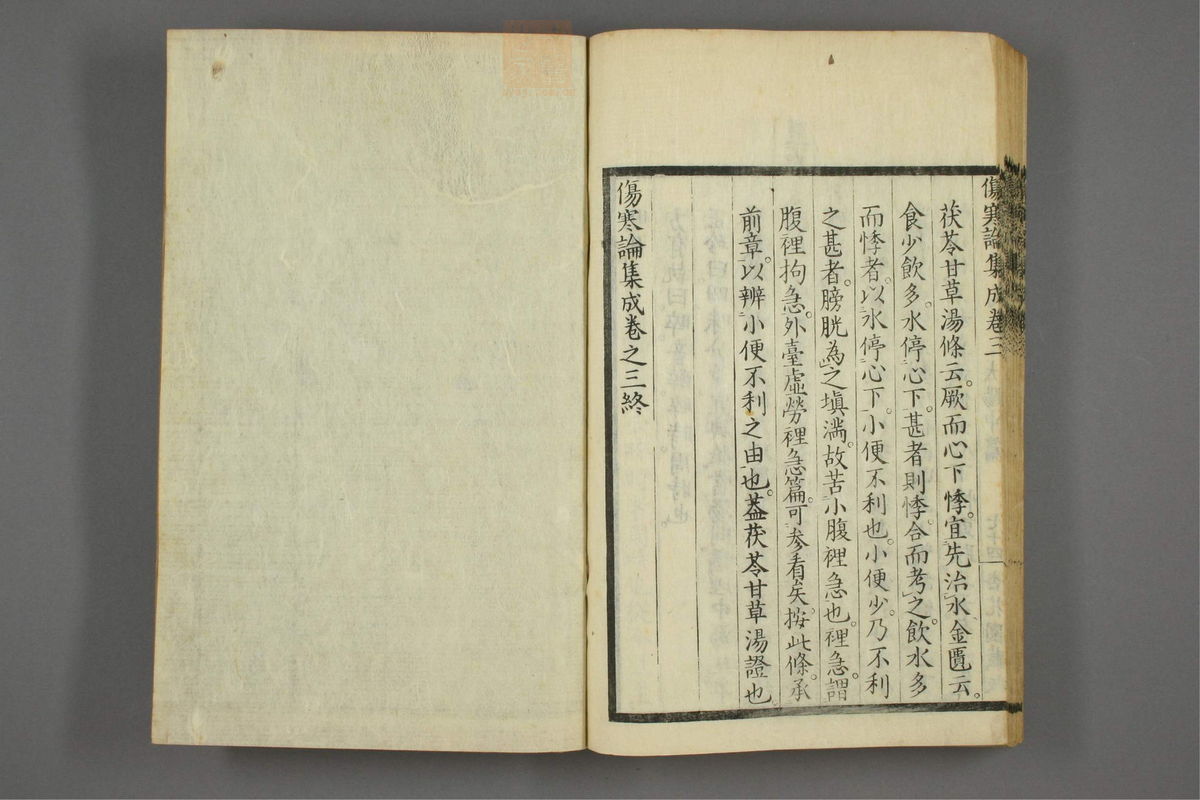 傷寒論集成卷三
茯苓甘草湯條云。厥而心下悸。宜先治水。金匱云。
食少飲多。水停心下。甚者則悸。合而考之。飲水多
而悸者。以水停心下。小便不利也。小便少。乃不利
之甚者。膀胱為之塡滿。故苦小腹裡急也。裡急。謂
腹裡拘急。外臺虛勞裡急篇。可參看矣。按此條。承
前章。以辨小便不利之由也。蓋茯苓甘草湯證也
傷寒論集成卷之三終